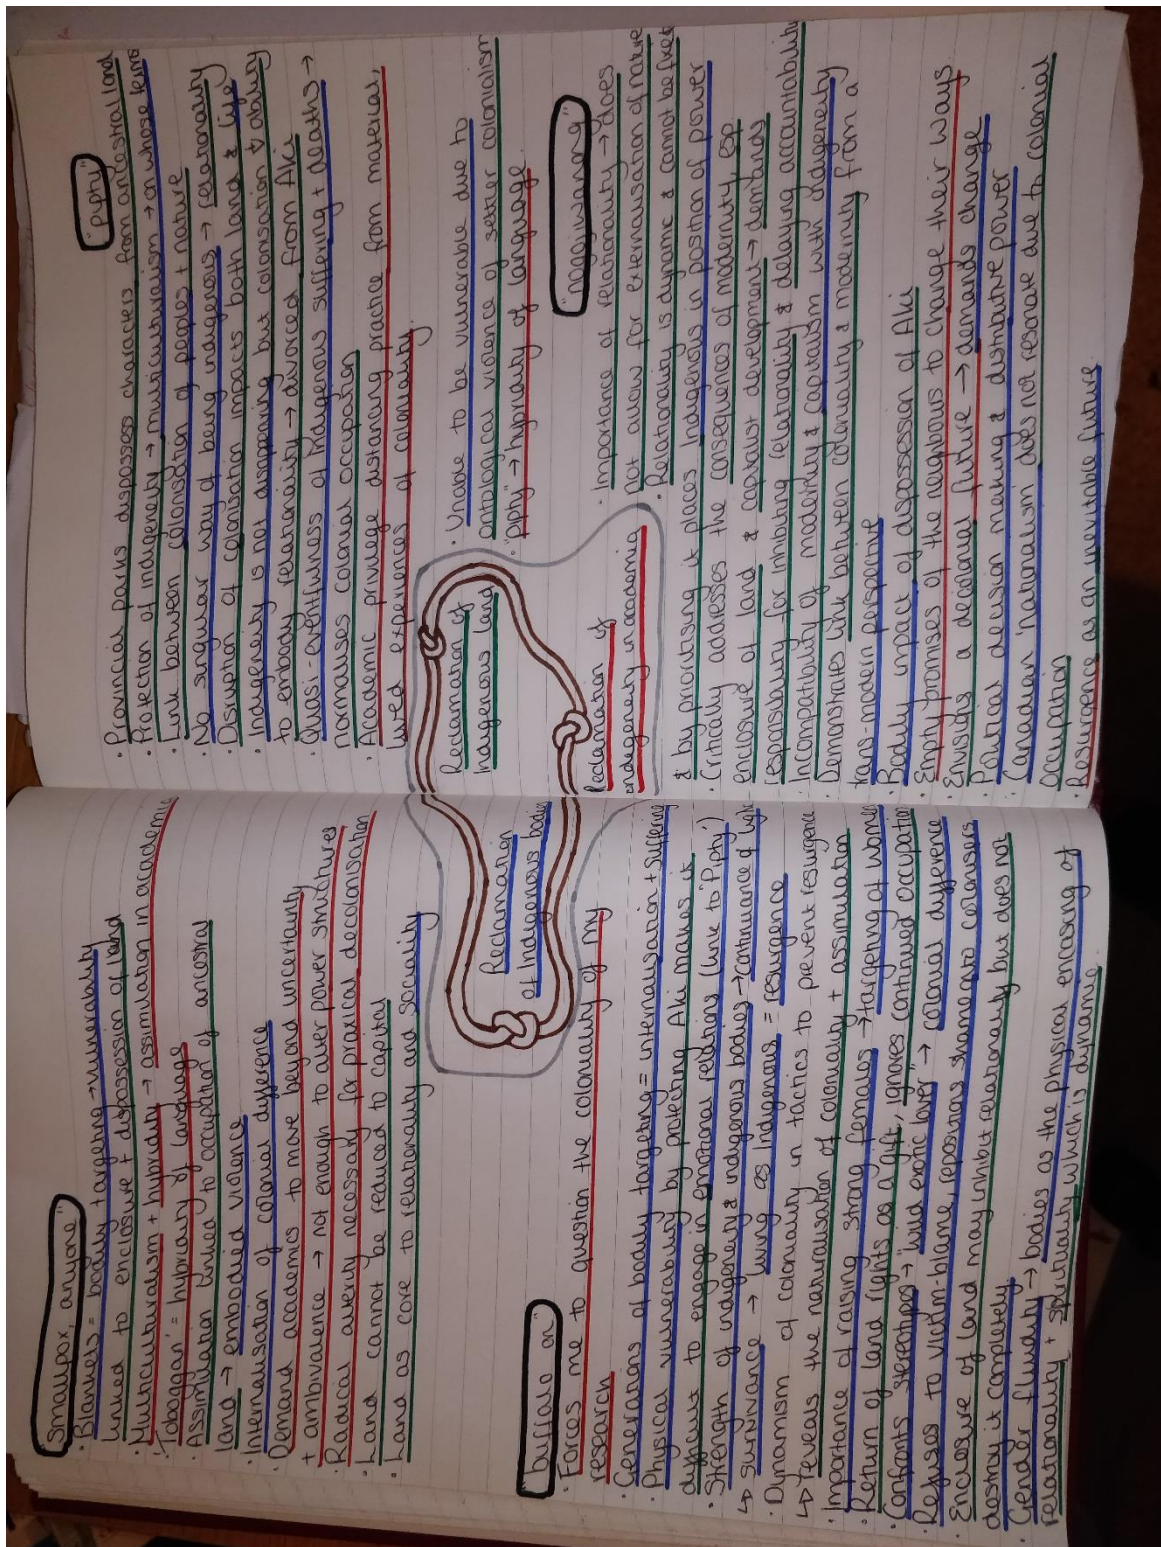 "Smallpox, anyone"
· Blankets = body targeting → vulnerability
linked to enclosure + dispossession of land
· Multiculturalism + hybridity → assimilation in academia
· 'Toboggan' = hybridity of language
· Assimilation linked to occupation of ancestral
land → embodied violence
· Internalisation of colonial difference
· Demand academics to move beyond uncertainty
+ ambivalence → not enough to alter power structures
· Radical alterity necessary for praxical decolonisation
· Land cannot be reduced to capital
· Land as core to relationality and sociality
"buffalo on"
· Forces me to question the coloniality of my
research
· Generations of body targeting = internalisation + suffering
· Physical vulnerability by protecting Aki makes it
difficult to engage in emotional relations (link to 'Piphy')
· Strength of indigeneity & indigenous bodies → continuance & light
↳ survivance → living as Indigenous = resurgence
· Dynamism of coloniality in tactics to prevent resurgence
↳ reveals the naturalisation of coloniality + assimilation
· Importance of raising strong females → targeting of women
· Return of land rights as a gift, ignores continued occupation
· Confronts stereotypes → 'wild exotic lover' → colonial difference
· Refuses to victim-blame, repositions shame onto colonisers
· Enclosure of land may inhibit relationality but does not
destroy it completely
· Gender fluidity → bodies as the physical encasing of
relationality + spirituality which is dynamic.
Reclamation
of Indigenous bodies
Reclamation of
Indigenous land
Reclamation of
indigeneity in academia
"piphy"
· Provincial parks dispossess characters from ancestral land
· Projection of indigeneity → multiculturalism → on whose terms
· Link between colonisation of peoples + nature
· No singular way of being indigenous → relationality
· Disruption of colonisation impacts both land & light
· Indigeneity is not disappearing but colonisation ↓ ability
to embody relationality → divorced from Aki
· Quasi-eventfulness of Indigenous suffering + deaths →
normalises colonial occupation
· Academic privilege distancing practice from material,
lived experiences of coloniality.
· Unable to be vulnerable due to
ontological violence of settler colonialism
· 'piphy' → hybridity of language
"nogojiwanong"
· Importance of relationality → does
not allow for externalisation of nature
· Relationality is dynamic & cannot be fixed
& by prioritising it places Indigenous in position of power
· Critically addresses the consequences of modernity esp
enclosure of land & capitalist development → demands
responsibility for inhibiting relationality & delaying accountability
· Incompatibility of modernity & capitalism with indigeneity
· Demonstrates link between coloniality & modernity from a
trans-modern perspective
· Bodily impact of dispossession of Aki
· Empty promises of the neighbours to change their ways
· Envisions a decolonial future → demands change
· Political decision making & distributive power
· Canadian 'nationalism' does not resonate due to colonial
occupation
· Resurgence as an inevitable future